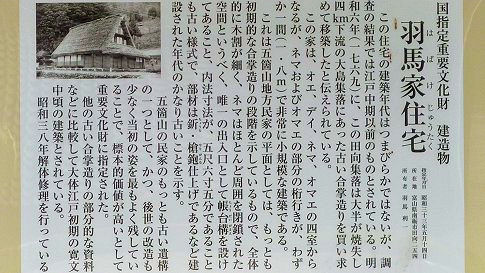 国指定重要文化財 建造物
羽馬家住宅
はばけじゅうたく
指定年月日 昭和三十三年五月十四日
所在地 富山県南砺市田向二五四
所有者 羽馬利一
この住宅の建築年代はつまびらかではないが、調
査の結果では江戸中期以前のものとされている。明
和六年(一七六九)に、この田向集落は大半が焼失し
4km下流の大島集落にあった古い合掌造りを買い求
めて移築したと伝えられている。
この家は、オエ、デイ、ネマ、オマエの四室から
なるが、ネマおよびオマエの部分の桁行きが、わず
か一間(一・八m)で非常に小規模な建築である。
これは五箇山地方民家の平面としては、もっとも
初期的な合掌造りの段階を示しているもので、全体
的に木割が細く、ネマはほとんど周囲を閉鎖された
空間というべく、唯一の出入口として帳台構を設け
てあること、内法寸法が、五尺六寸五分であること
も古い様式で、部材は釿・槍鉋仕上げであるなど建
設された年代のかなり古いことを示す。
五箇山の民家のもっとも古い遺構
の一つとして、かつ、後世の改造も
少なく当初の姿を最もよく残してい
ることで、標本的価値が高いとして
重要文化財に指定された。
他の古い合掌造りの部分的な資料
などに比較して大体江戸初期の寛文
中頃の建築とされている。
昭和三八年解体修理を行っている